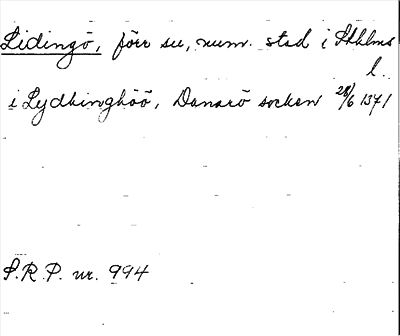 Lidingö, förr su, num. stad i Sthlms
l.
i Lydhinghöö, Danarö socken 28/6 1371
S.R.P. nr. 994